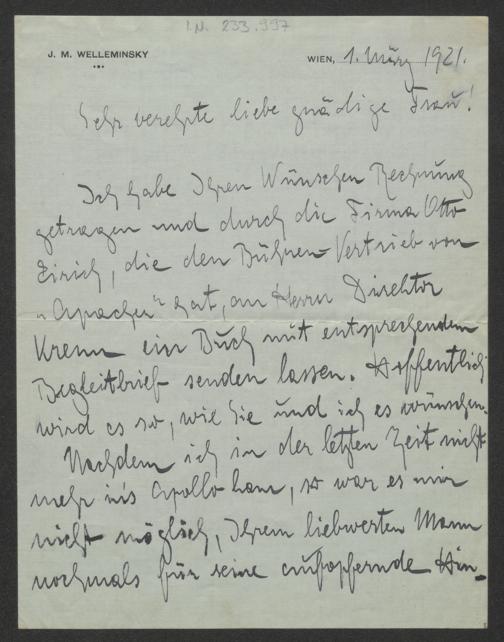 I.N. 233.997
J. M. WELLEMINSKY
WIEN, 1. März 1921.
Sehr verehrte liebe gnädige Frau!
Ich habe Ihren Wünschen Rechnung
getragen und durch die Firma Otto
Eirich, die den Bühnen-Vertrieb von
"Apachen" hat, an Herrn Direktor
Krenn ein Buch mit entsprechendem
Begleitbrief senden lassen. Hoffentlich
wird es so, wie Sie und ich es wünschen.
Nachdem ich in der letzten Zeit nicht
mehr in's Apollo kam, so war es mir
nicht möglich, Ihrem liebwerten Mann
nochmals für seine aufopfernde Hin-